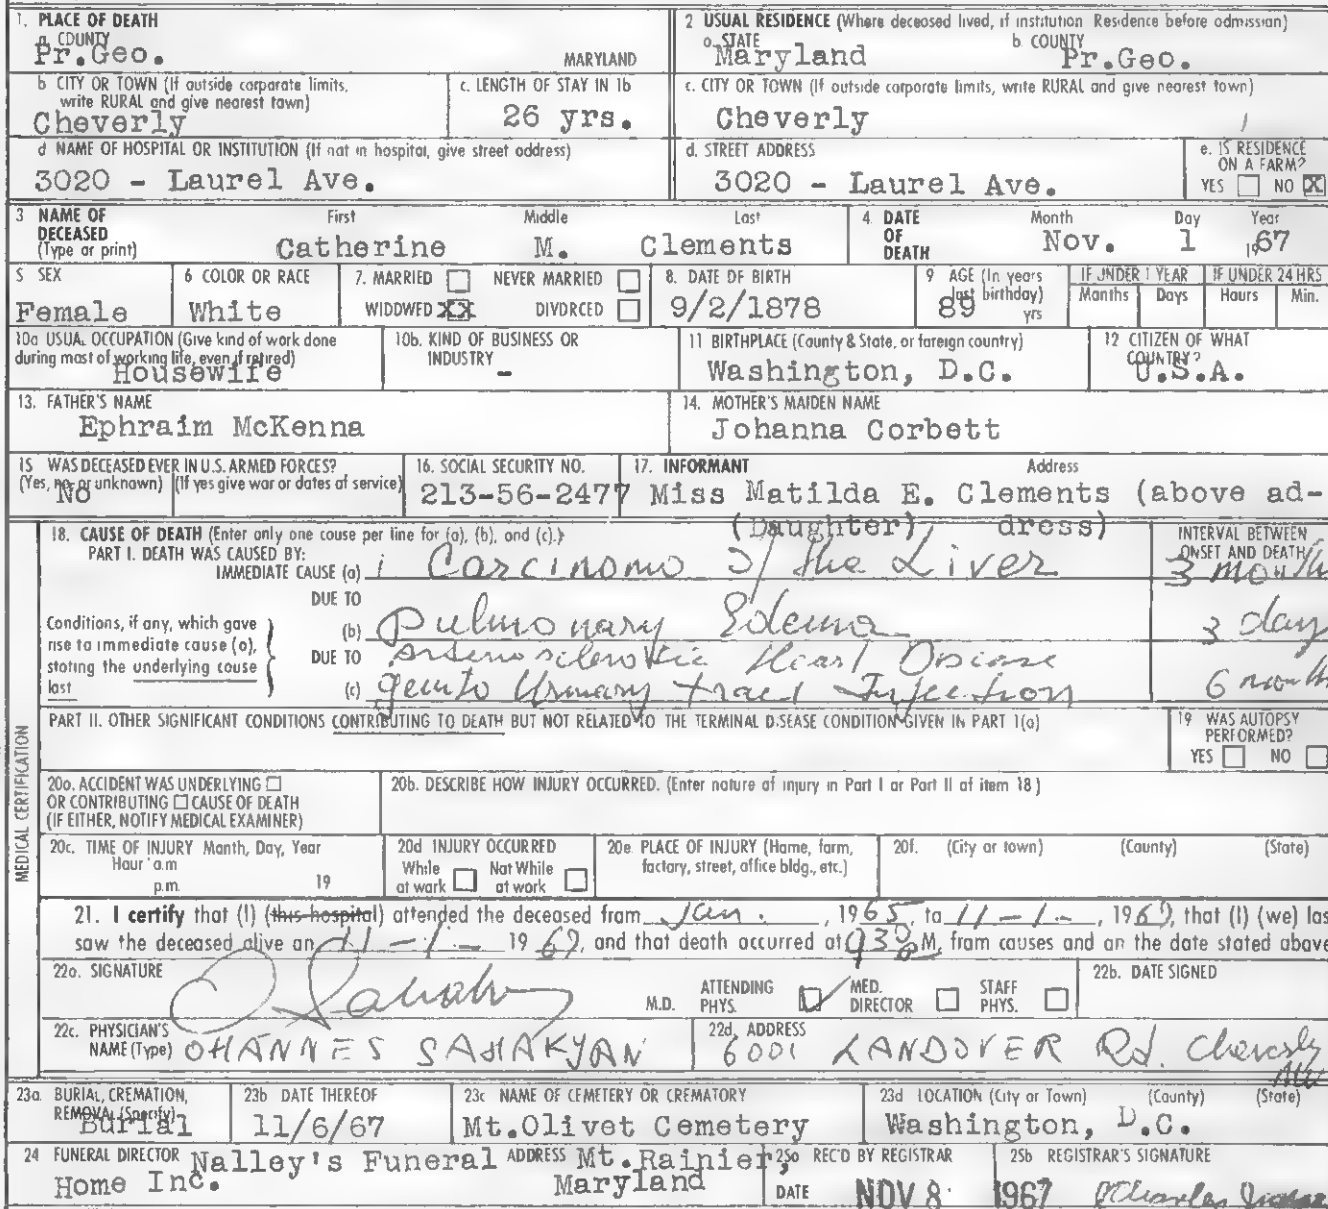 1. PLACE OF DEATH
a. COUNTY
Pr.Geo.
MARYLAND
2 USUAL RESIDENCE (Where deceased lived, if institution Residence before admission)
a. STATE b COUNTY
Maryland Pr.Geo.
b CITY OR TOWN (If outside corporate limits, write RURAL and give nearest town)
Cheverly
c. LENGTH OF STAY IN 1b
26 yrs.
c. CITY OR TOWN (If outside corporate limits, write RURAL and give nearest town)
Cheverly
d NAME OF HOSPITAL OR INSTITUTION (If not in hospital, give street address)
3020 - Laurel Ave.
d. STREET ADDRESS
3020 - Laurel Ave.
e. IS RESIDENCE ON A FARM?
YES NO X
3 NAME OF DECEASED (Type or print)
First Middle Last
Catherine M. Clements
4 DATE OF DEATH
Month Day Year
Nov. 1 1967
5 SEX
Female
6 COLOR OR RACE
White
7. MARRIED NEVER MARRIED
WIDOWED XX DIVORCED
8. DATE OF BIRTH
9/2/1878
9 AGE (In years last birthday)
89 yrs
IF UNDER 1 YEAR
Months Days
IF UNDER 24 HRS
Hours Min.
10a USUAL OCCUPATION (Give kind of work done during most of working life, even if retired)
Housewife
10b. KIND OF BUSINESS OR INDUSTRY
-
11 BIRTHPLACE (County & State, or foreign country)
Washington, D.C.
12 CITIZEN OF WHAT COUNTRY?
U.S.A.
13. FATHER'S NAME
Ephraim McKenna
14. MOTHER'S MAIDEN NAME
Johanna Corbett
15 WAS DECEASED EVER IN U.S. ARMED FORCES?
(Yes, no, or unknown) (If yes give war or dates of service)
No
16. SOCIAL SECURITY NO.
213-56-2477
17. INFORMANT Address
Miss Matilda E. Clements (above ad-
(Daughter) dress)
18. CAUSE OF DEATH (Enter only one cause per line for (a), (b), and (c).)
PART I. DEATH WAS CAUSED BY:
IMMEDIATE CAUSE (a) Carcinoma of the Liver
INTERVAL BETWEEN ONSET AND DEATH
3 month
DUE TO
Conditions, if any, which gave rise to immediate cause (a), stating the underlying cause last
(b) Pulmonary Edema
3 day
DUE TO Arteriosclerotic Heart Disease
(c) Genito Urinary tract Infection
6 month
PART II. OTHER SIGNIFICANT CONDITIONS CONTRIBUTING TO DEATH BUT NOT RELATED TO THE TERMINAL DISEASE CONDITION GIVEN IN PART I(a)
19 WAS AUTOPSY PERFORMED?
YES NO
MEDICAL CERTIFICATION
20a. ACCIDENT WAS UNDERLYING
OR CONTRIBUTING CAUSE OF DEATH
(IF EITHER, NOTIFY MEDICAL EXAMINER)
20b. DESCRIBE HOW INJURY OCCURRED. (Enter nature of injury in Part I or Part II of item 18)
20c. TIME OF INJURY Month, Day, Year
Hour a.m
p.m. 19
20d INJURY OCCURRED
While at work Not While at work
20e PLACE OF INJURY (Home, farm, factory, street, office bldg., etc.)
20f. (City or town) (County) (State)
21. I certify that (I) (this hospital) attended the deceased from Jan., 1965, to 11-1-, 1967, that (I) (we) las
saw the deceased alive on 11-1- 1967, and that death occurred at M, from causes and on the date stated above
22a. SIGNATURE
M.D. ATTENDING PHYS. MED. DIRECTOR STAFF PHYS.
22b. DATE SIGNED
22c. PHYSICIAN'S NAME (Type) OHANNES SAHAKYAN
22d. ADDRESS
6001 LANDOVER Rd. Cheverly
Md
23a. BURIAL, CREMATION, REMOVAL (Specify)
Burial
23b DATE THEREOF
11/6/67
23c NAME OF CEMETERY OR CREMATORY
Mt.Olivet Cemetery
23d LOCATION (City or Town) (County) (State)
Washington, D.C.
24 FUNERAL DIRECTOR ADDRESS
Nalley's Funeral Mt.Rainier,
Home Inc. Maryland
25a REC'D BY REGISTRAR
DATE NOV 8 1967
25b REGISTRAR'S SIGNATURE
Charles